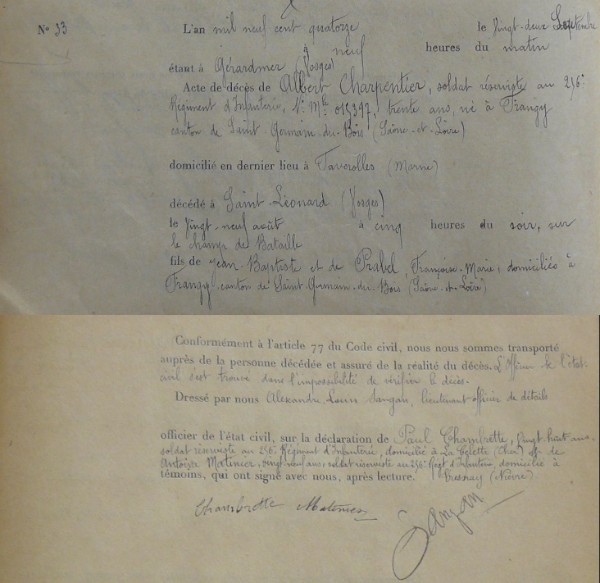 N° 33
L'an mil neuf cent quatorze le vingt-deux Septembre
à neuf heures du matin
étant à Gérardmer (Vosges)
Acte de décès de Albert Charpentier, soldat réserviste au 256e
Régiment d'Infanterie, N° Mle 018397, trente ans, né à Frangy
canton de Saint Germain-du-Bois (Saône-et-Loire)
domicilié en dernier lieu à (Marne)
décédé à Saint-Léonard (Vosges)
le vingt-neuf août à cinq heures du soir, sur
le champ de Bataille
fils de Jean Baptiste et de Prabel, Françoise-Marie, domiciliés à
Frangy canton de Saint-Germain-du-Bois (Saône-et-Loire)
Conformément à l'article 77 du Code civil, nous nous sommes transporté
auprès de la personne décédée et assuré de la réalité du décès. L'officier de l'état-
civil s'est trouvé dans l'impossibilité de vérifier le décès.
Dressé par nous Alexandre Sangan, lieutenant officier de détails
officier de l'état civil, sur la déclaration de Paul Chambrette, vingt-huit ans,
soldat réserviste au 256e Régiment d'Infanterie, domicilié à La (Cher) et de
Antoine Matinier, vingt neuf ans, soldat réserviste au 256e Regt d'Infanterie domicilié à
témoins, qui ont signé avec nous, après lecture. (Nièvre)
Chambrette Matinier
Sangan